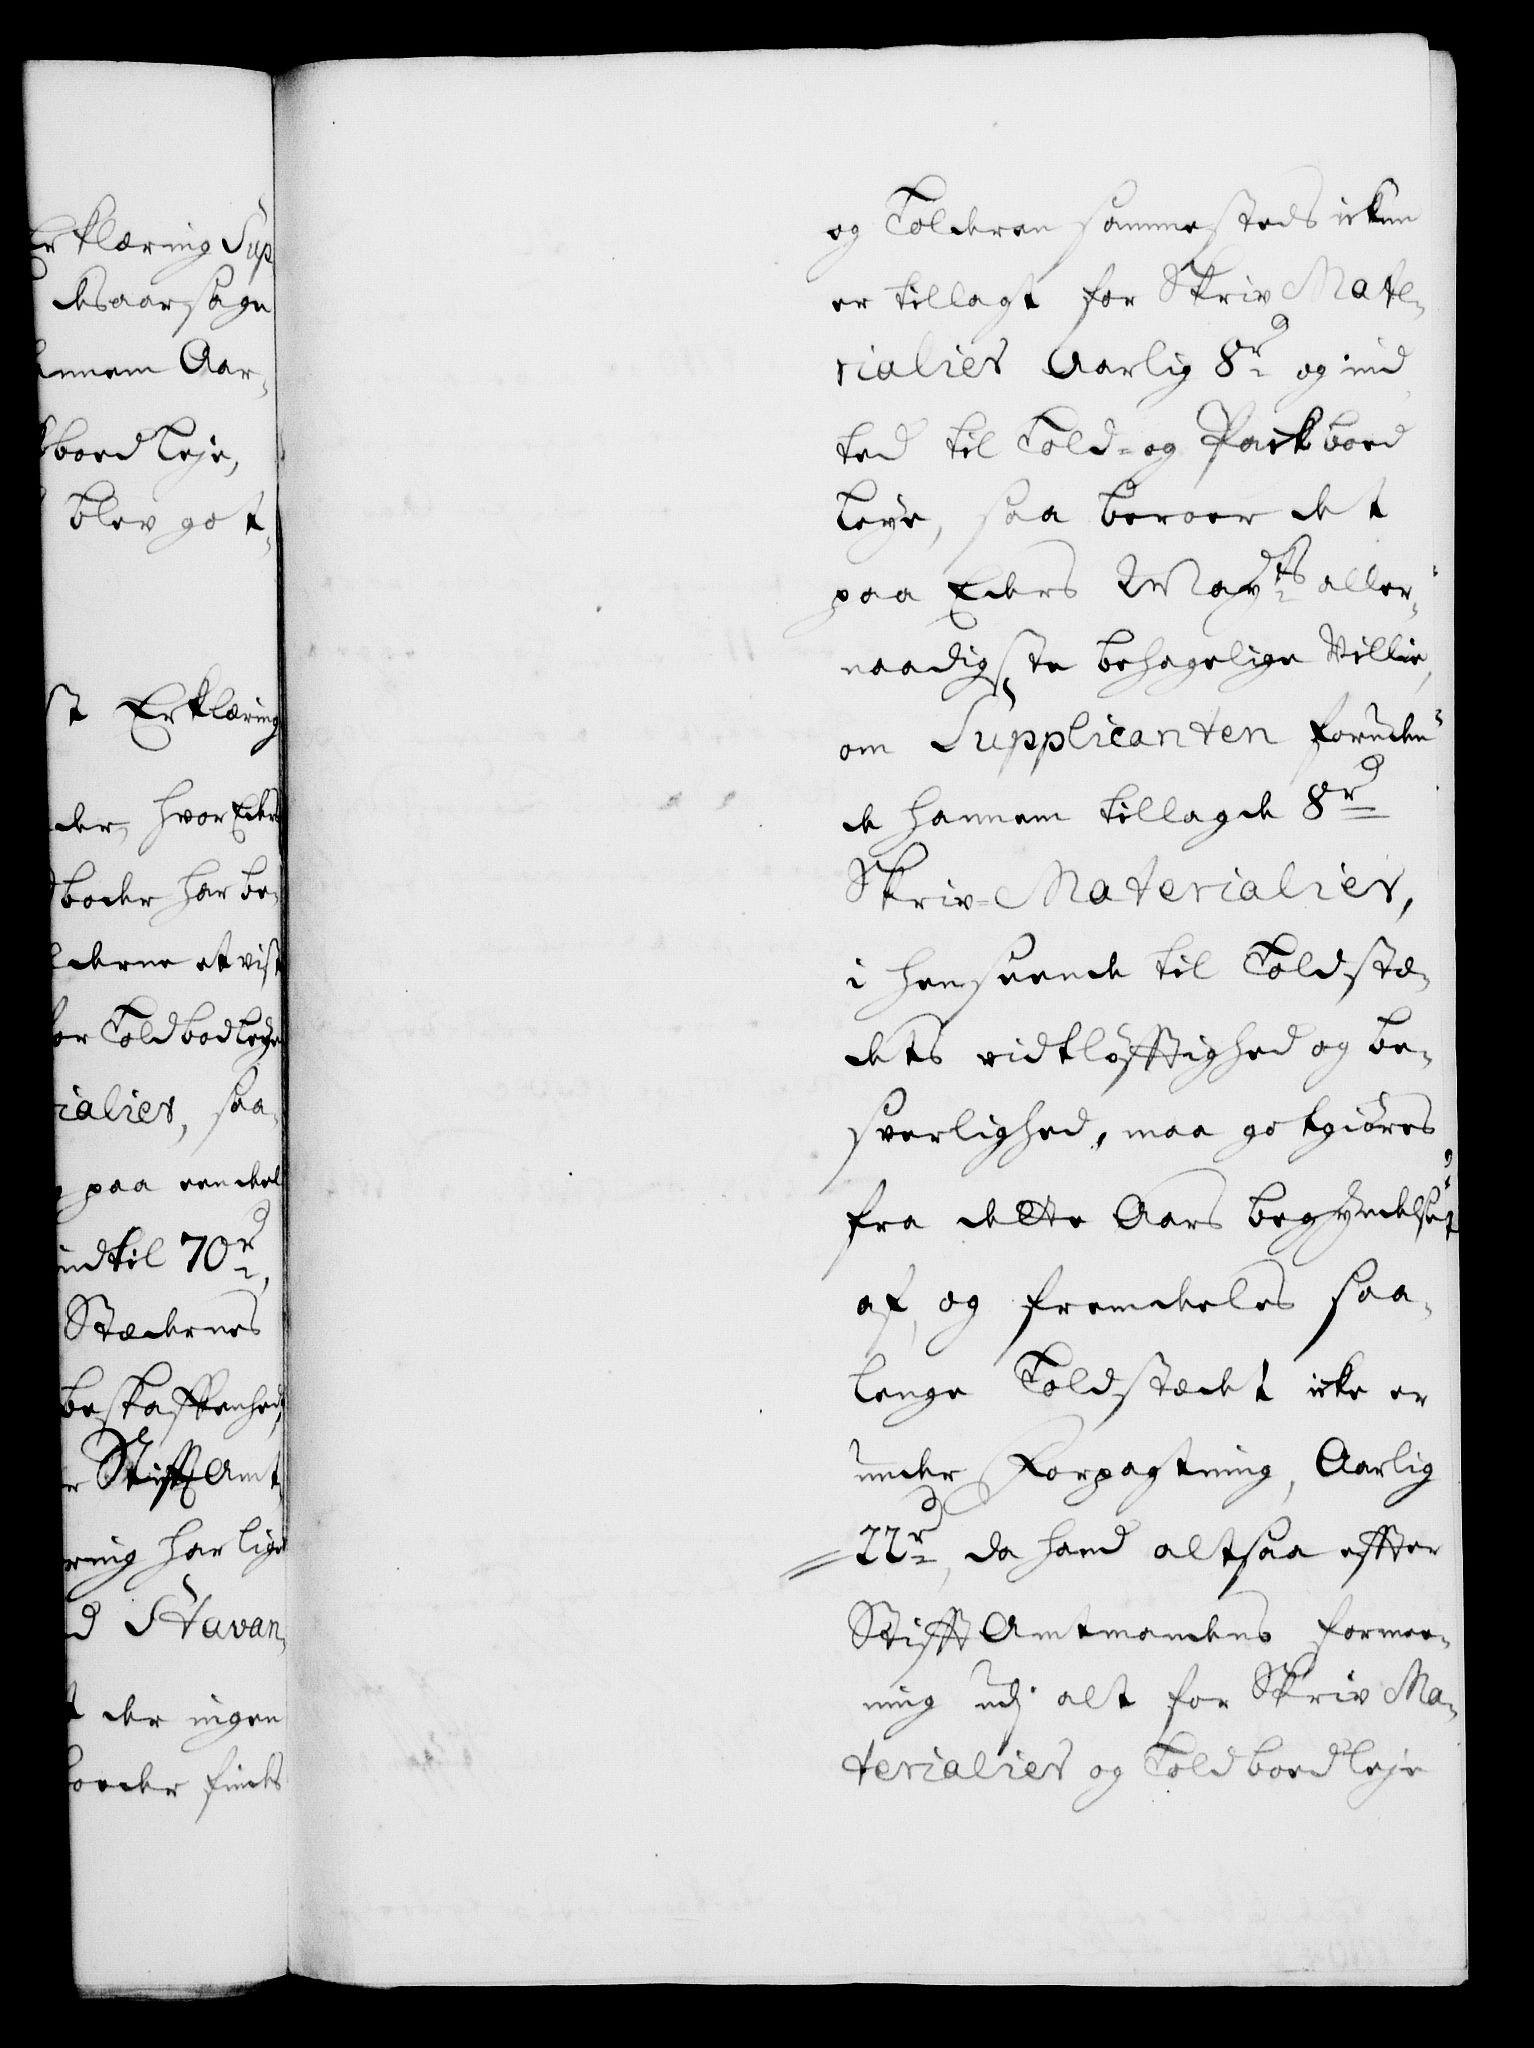 Erklæring Sup
desaarsage
annem Aar-
boed Leje,
blev got-
st Erklæring
der, hvor Eders
boder har be-
derne et vist
for Toldbodleye
rialier, saa-
paa een deel
indtil 70 rd,
Stædernes
beskaffenhed,
r Stift Amt-
ring har lige
d Stavan-
t der ingen
boeder findes
og Tolderen sammesteds ickun
er tillagt for Skriv Mate-
rialier Aarlig 8 rd og ind
ted til Told- og Packboed
Leye, saa beroer det
paa Eders Mayts aller-
naadigste behagelige Villie,
om Supplicanten foruden
de hannem tillagde 8 rd
Skriv-Materialier,
i henseende til Toldstæ-
dets vidtløfftighed og be-
sverlighed, maa gotgiøres
fra dette Aars begyndelse
af, og fremdeles saa-
lenge Toldstædet icke er
under Forpagtning, Aarlig
22 rd, da hand altsaa effter
Stifft Amtmandens formee-
ning udj alt for Skriv Ma-
terialier og Toldboedleje